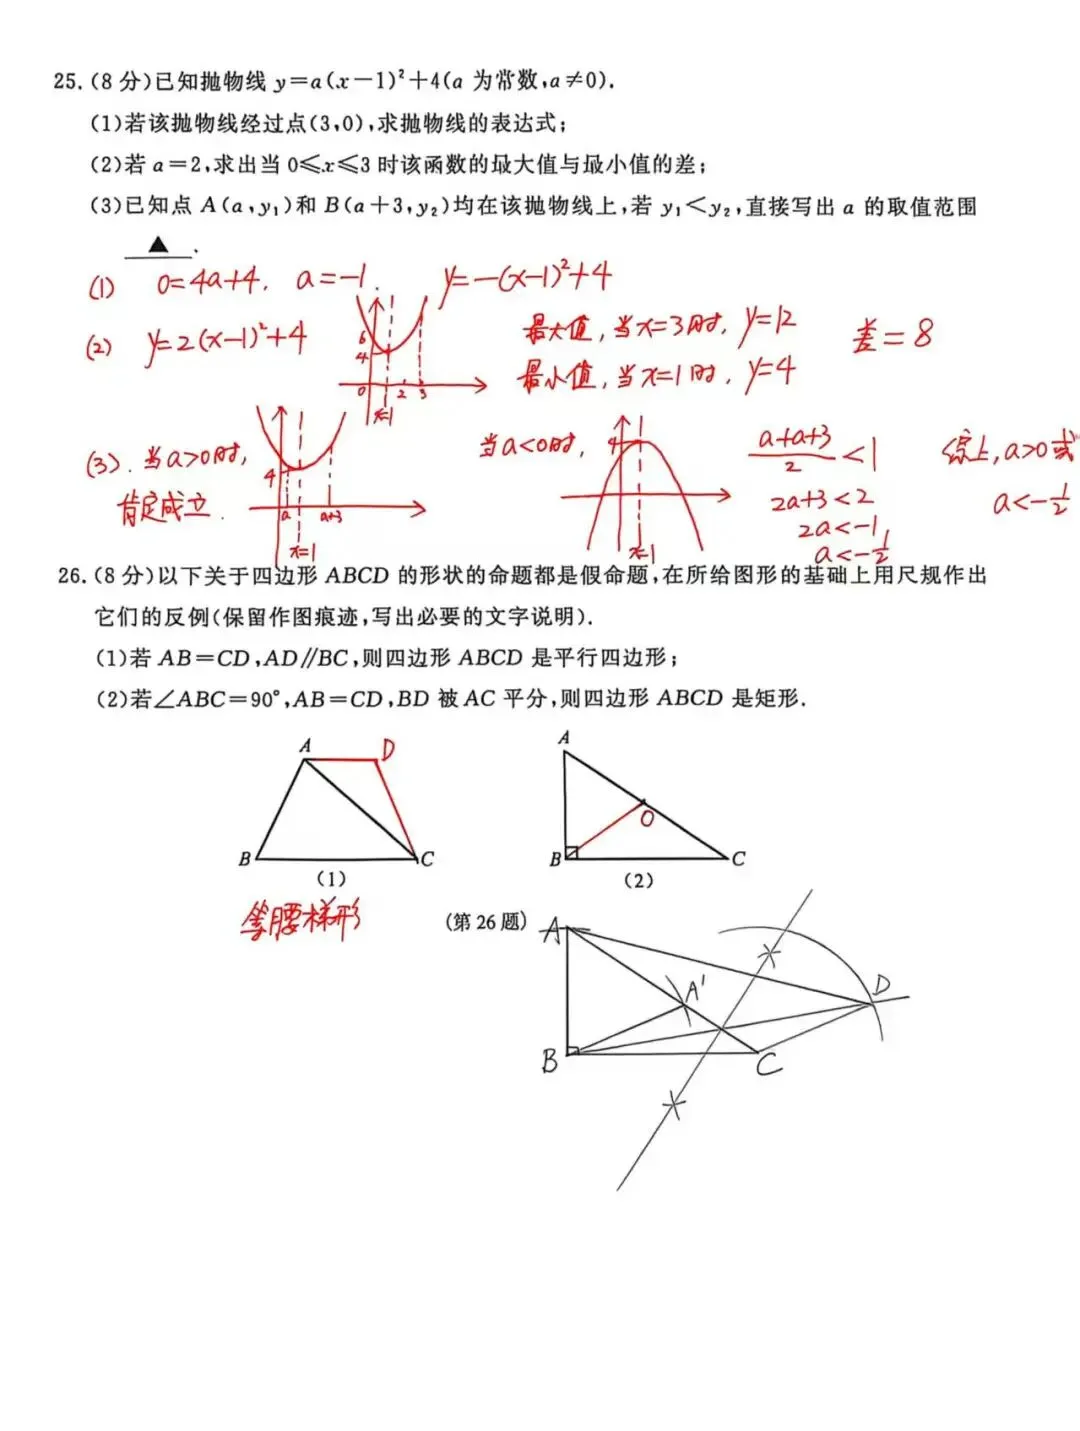 25.(8 分)已知抛物线 y=a(x-1)²+4(a 为常数,a≠0).
(1)若该抛物线经过点(3,0),求抛物线的表达式;
(2)若 a=2,求出当 0≤x≤3 时该函数的最大值与最小值的差;
(3)已知点 A(a,y₁)和 B(a+3,y₂)均在该抛物线上,若 y₁<y₂,直接写出 a 的取值范围
▲ .
(1) 0=4a+4. a=-1. y=-(x-1)²+4
(2) y=2(x-1)²+4
6
4
0 2 3
x=1
最大值,当x=3时,y=12
最小值,当x=1时,y=4
差=8
(3).当a>0时,
肯定成立.
4
a a+3
x=1
当a<0时,
4
x=1
(a+a+3)/2<1
2a+3<2
2a<-1
a<-1/2
综上,a>0或
a<-1/2
26.(8 分)以下关于四边形 ABCD 的形状的命题都是假命题,在所给图形的基础上用尺规作出
它们的反例(保留作图痕迹,写出必要的文字说明).
(1)若 AB=CD,AD∥BC,则四边形 ABCD 是平行四边形;
(2)若∠ABC=90°,AB=CD,BD 被 AC 平分,则四边形 ABCD 是矩形.
A D
B C
(1)
A
O
B C
(2)
等腰梯形
(第 26 题)
A
A' D
B C